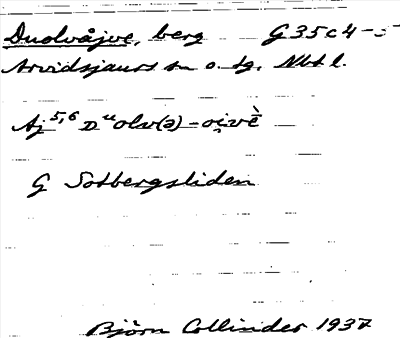 Duolvåjve, berg G35c4-5
Arvidsjaurs sn o. tg. Nbt l.
Aj 5,6 Duolv(ə)-oi̯vè
G Sotbergsliden
Björn Collinder 1937